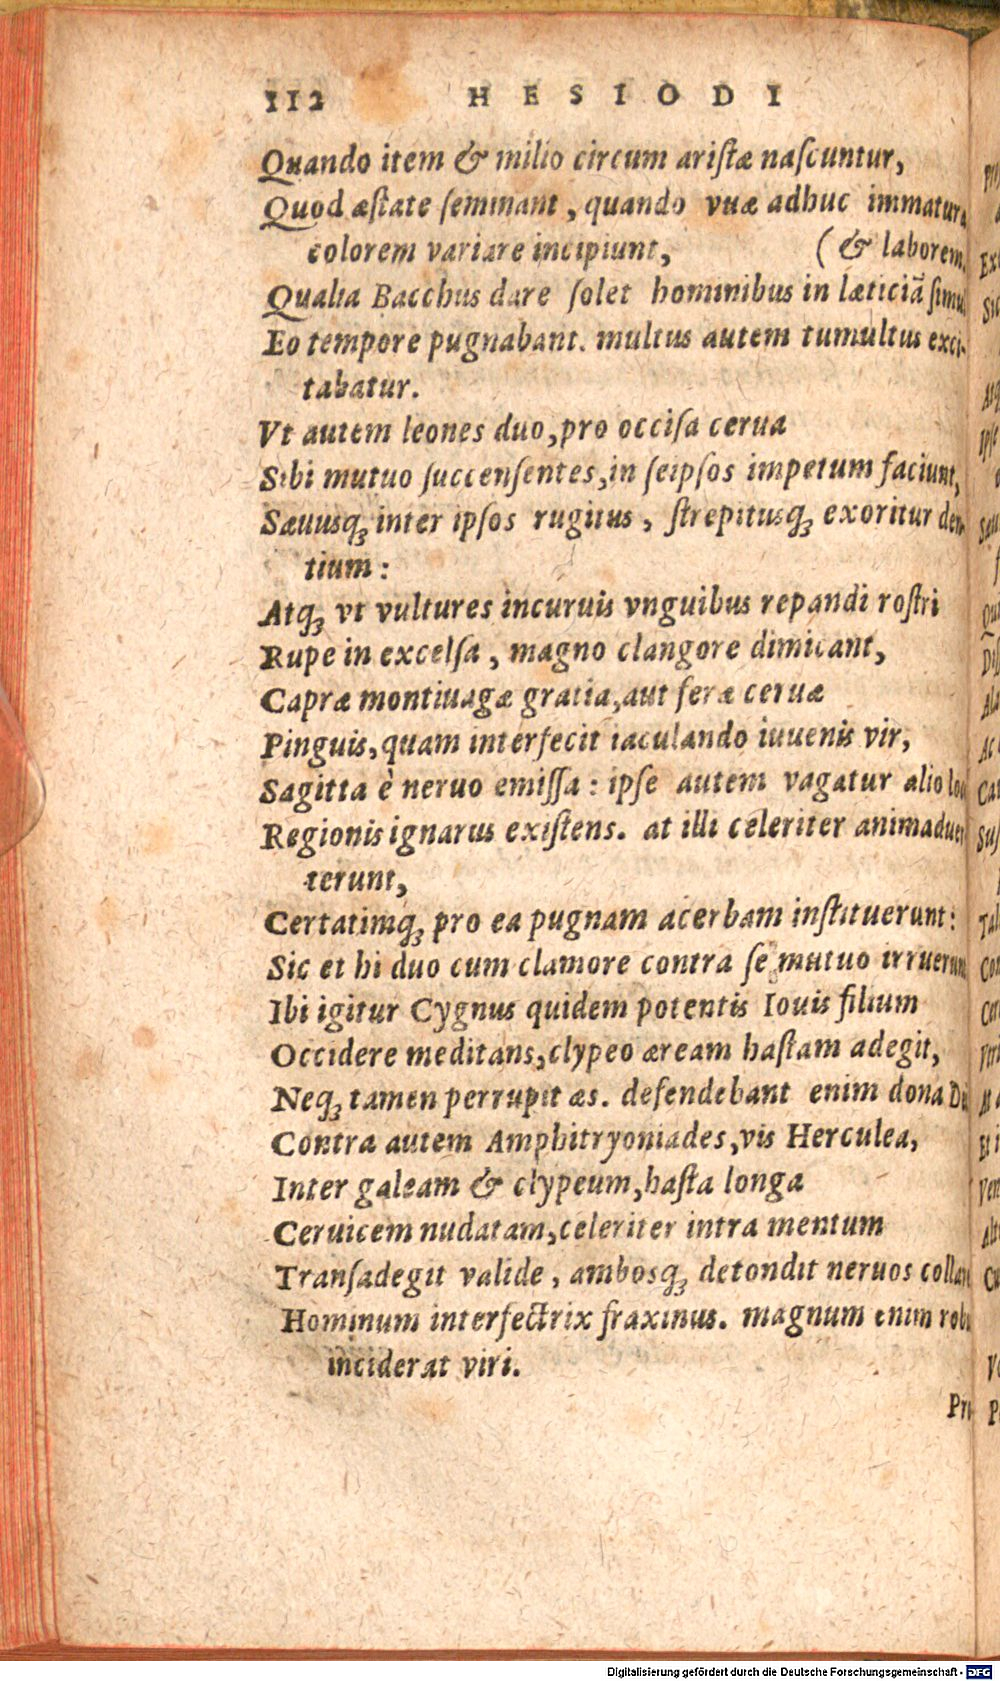 112 HESIODI
Quando item & milio circum aristæ nascuntur,
Quod æstate seminant, quando vuæ adhuc immatura
colorem variare incipiunt, (& laborem.
Qualia Bacchus dare solet hominibus in læticiã simul
Eo tempore pugnabant. multus autem tumultus exci-
tabatur.
Vt autem leones duo, pro occisa cerua
Sibi mutuo succensentes, in seipsos impetum faciunt,
Sæuusq; inter ipsos rugitus, strepitusq; exoritur den
tium:
Atq; vt vultures incuruis vnguibus repandi rostri
Rupe in excelsa, magno clangore dimicant,
Capræ montiuagæ gratia, aut feræ ceruæ
Pinguis, quam interfecit iaculando iuuenis vir,
Sagitta è neruo emissa: ipse autem vagatur alio
Regionis ignarus existens. at illi celeriter animaduer
terunt,
Certatimq; pro ea pugnam acerbam instituerunt:
Sic et hi duo cum clamore contra se mutuo irruerunt
Ibi igitur Cygnus quidem potentis Iouis filium
Occidere meditans, clypeo æream hastam adegit,
Neq; tamen perrupit æs. defendebant enim dona
Contra autem Amphitryoniades, vis Herculea,
Inter galeam & clypeum, hasta longa
Ceruicem nudatam, celeriter intra mentum
Transadegit valide, ambosq; detondit neruos
Hominum interfectrix fraxinus. magnum enim
inciderat viri.
Pri
Digitalisierung gefördert durch die Deutsche Forschungsgemeinschaft - DFG